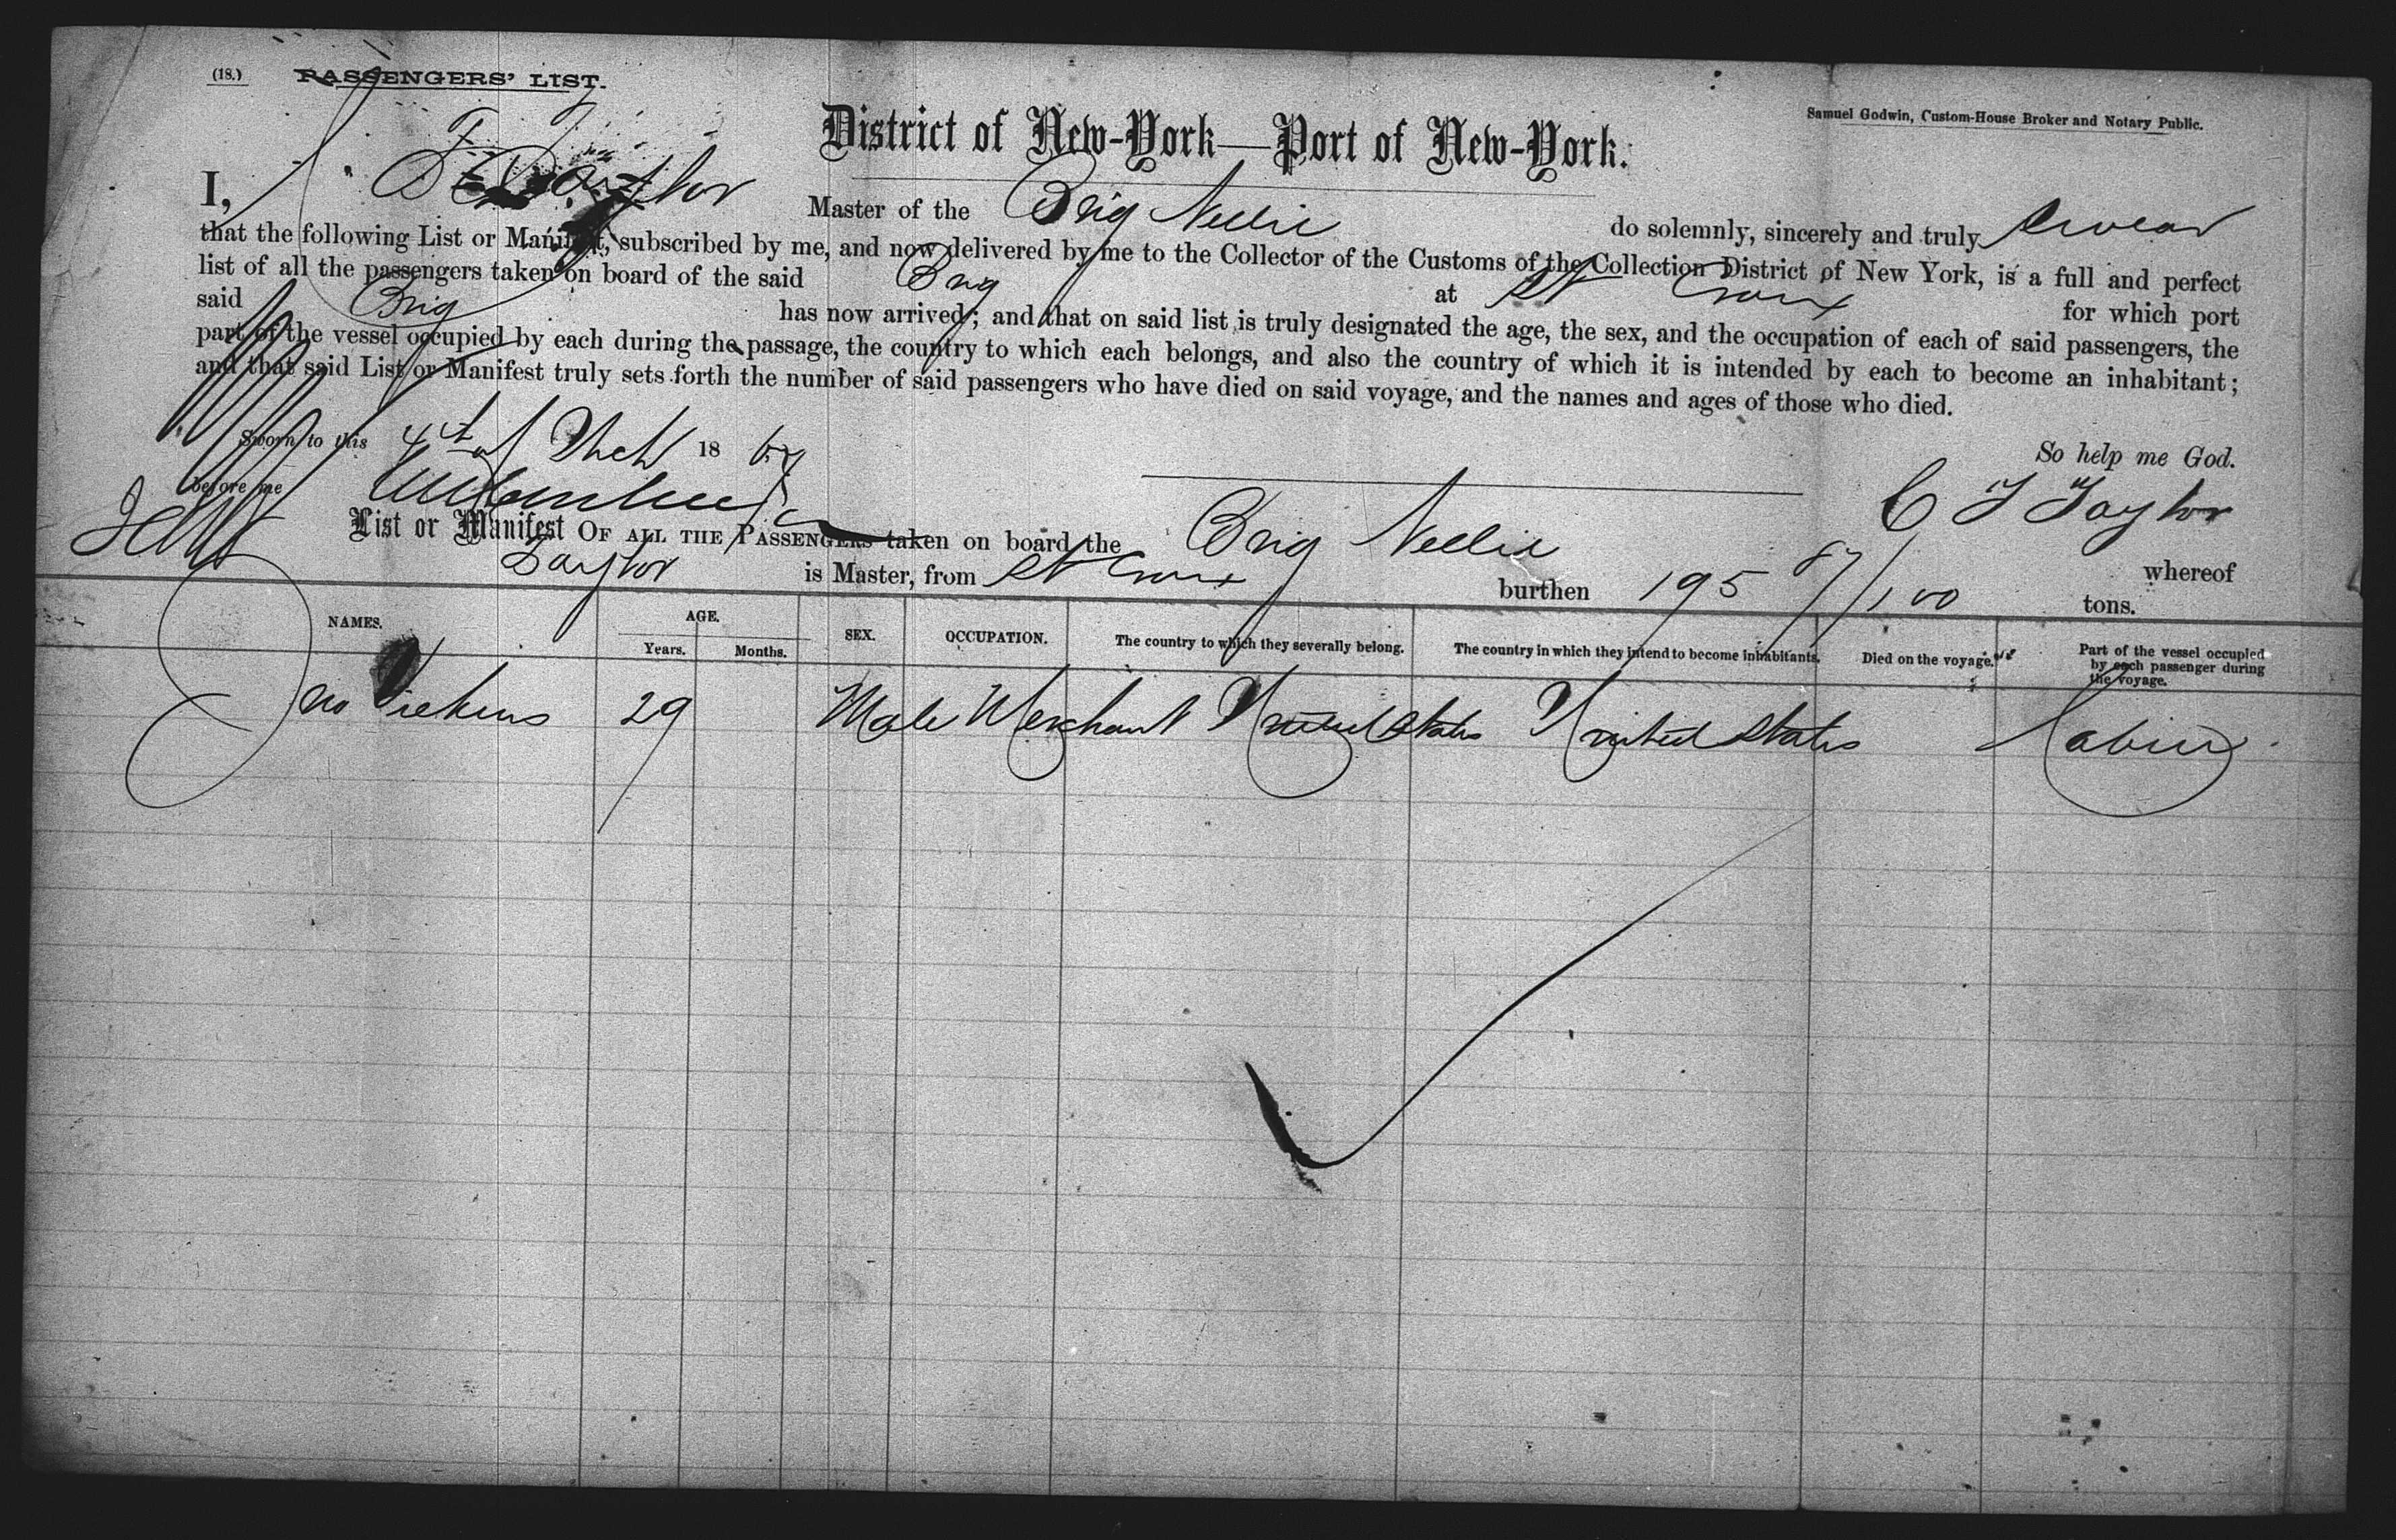 (18.) PASSENGERS' LIST.
Samuel Godwin, Custom-House Broker and Notary Public.
District of New-York—Port of New-York.
I, Taylor Master of the Brig Nellie do solemnly, sincerely and truly swear
that the following List or Manifest, subscribed by me, and now delivered by me to the Collector of the Customs of the Collection District of New York, is a full and perfect
list of all the passengers taken on board of the said Brig at St Croix for which port
said Brig has now arrived; and that on said list is truly designated the age, the sex, and the occupation of each of said passengers, the
part of the vessel occupied by each during the passage, the country to which each belongs, and also the country of which it is intended by each to become an inhabitant;
and that said List or Manifest truly sets forth the number of said passengers who have died on said voyage, and the names and ages of those who died.
So help me God.
Sworn to this 4th of Mch 18
before me
C T Taylor
List or Manifest OF ALL THE PASSENGERS taken on board the Brig Nellie whereof
Taylor is Master, from St Croix burthen 195 87/100 tons.
NAMES. AGE. SEX. OCCUPATION. The country to which they severally belong. The country in which they intend to become inhabitants. Died on the voyage. Part of the vessel occupied by each passenger during the voyage.
Years. Months.
Jno 29 Male Merchant United States United States Cabin